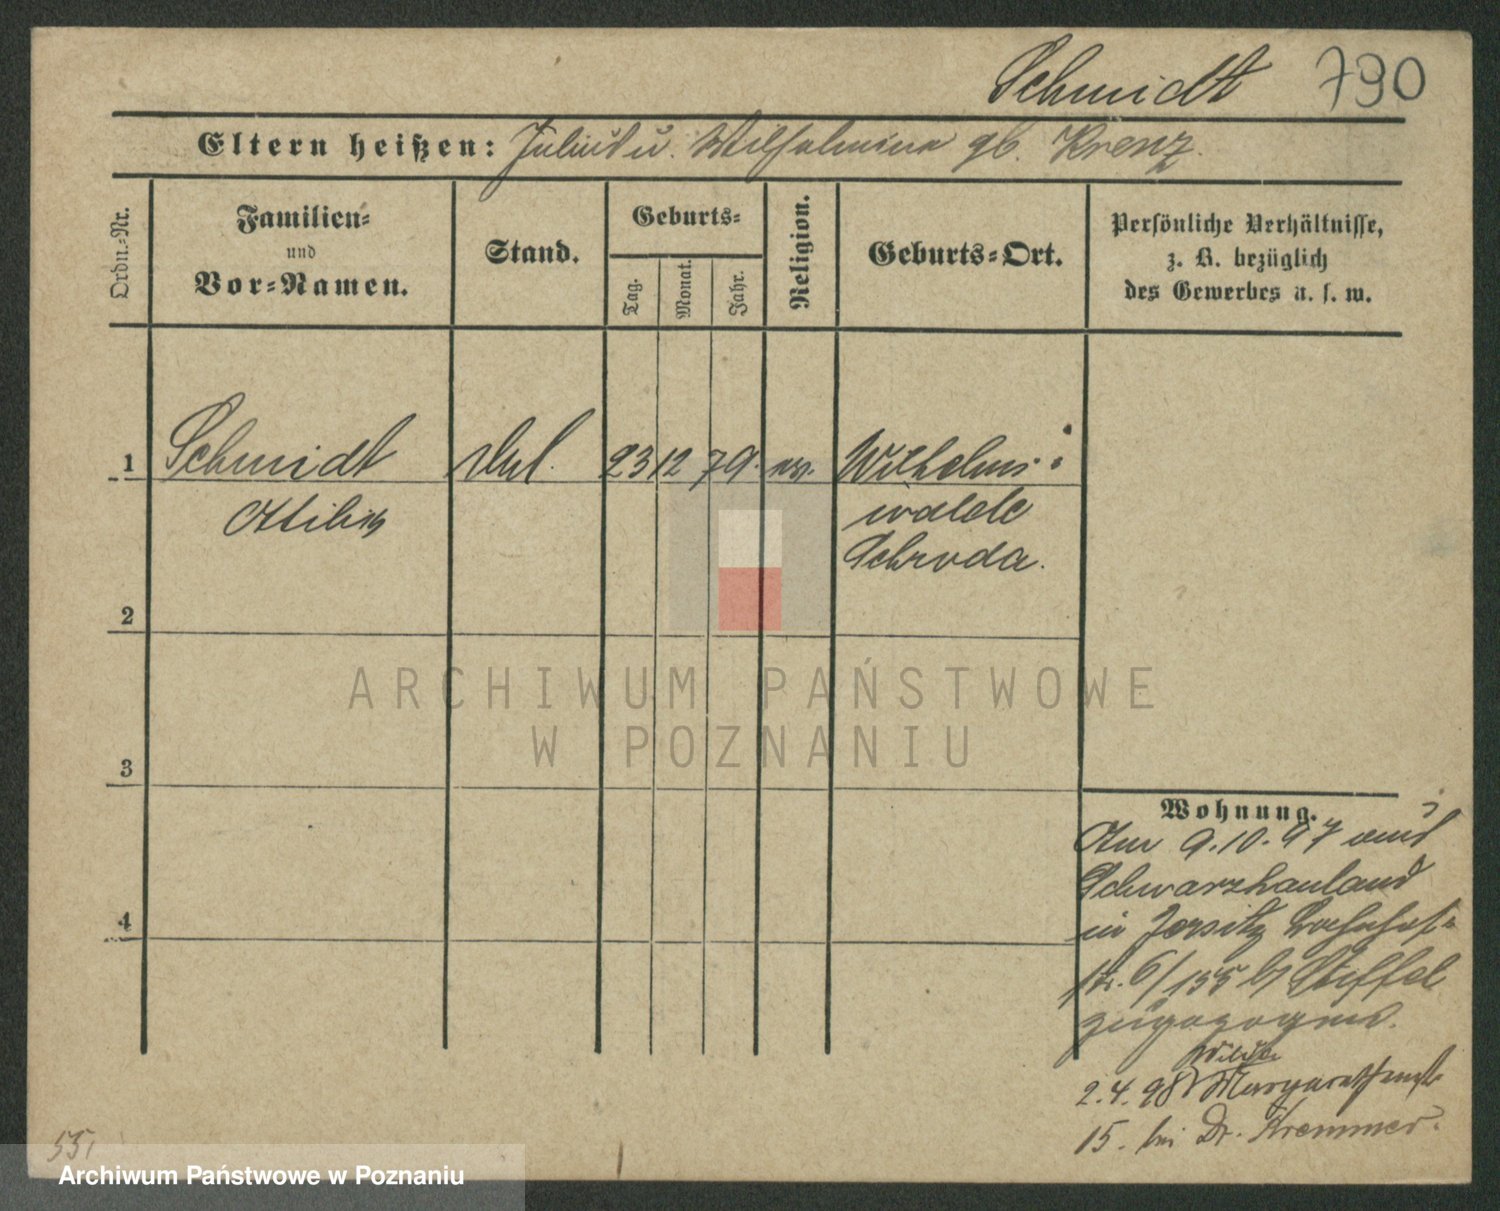 Schmidt 790
Eltern heißen: Julius u. Wilhelmine gb. Krenz.
Ordn.-Nr.
Familien-
und
Vor-Namen.
Stand.
Geburts-
Tag.
Monat.
Jahr.
Religion.
Geburts-Ort.
Persönliche Verhältnisse,
z. B. bezüglich
des Gewerbes u. s. w.
1 Schmidt 23 12 79. ev. Wilhelms-
Ottilie walde
Schroda.
2
3
4
Wohnung.
Am 9.10.97 aus
Schwarzhauland
in Jersitz
str. 6/155 b/ Stiffel
zugezogen.
2.4.98 Margarethenstr
15. bei Dr. Kremmer.
551
ARCHIWUM PAŃSTWOWE
W POZNANIU
Archiwum Państwowe w Poznaniu